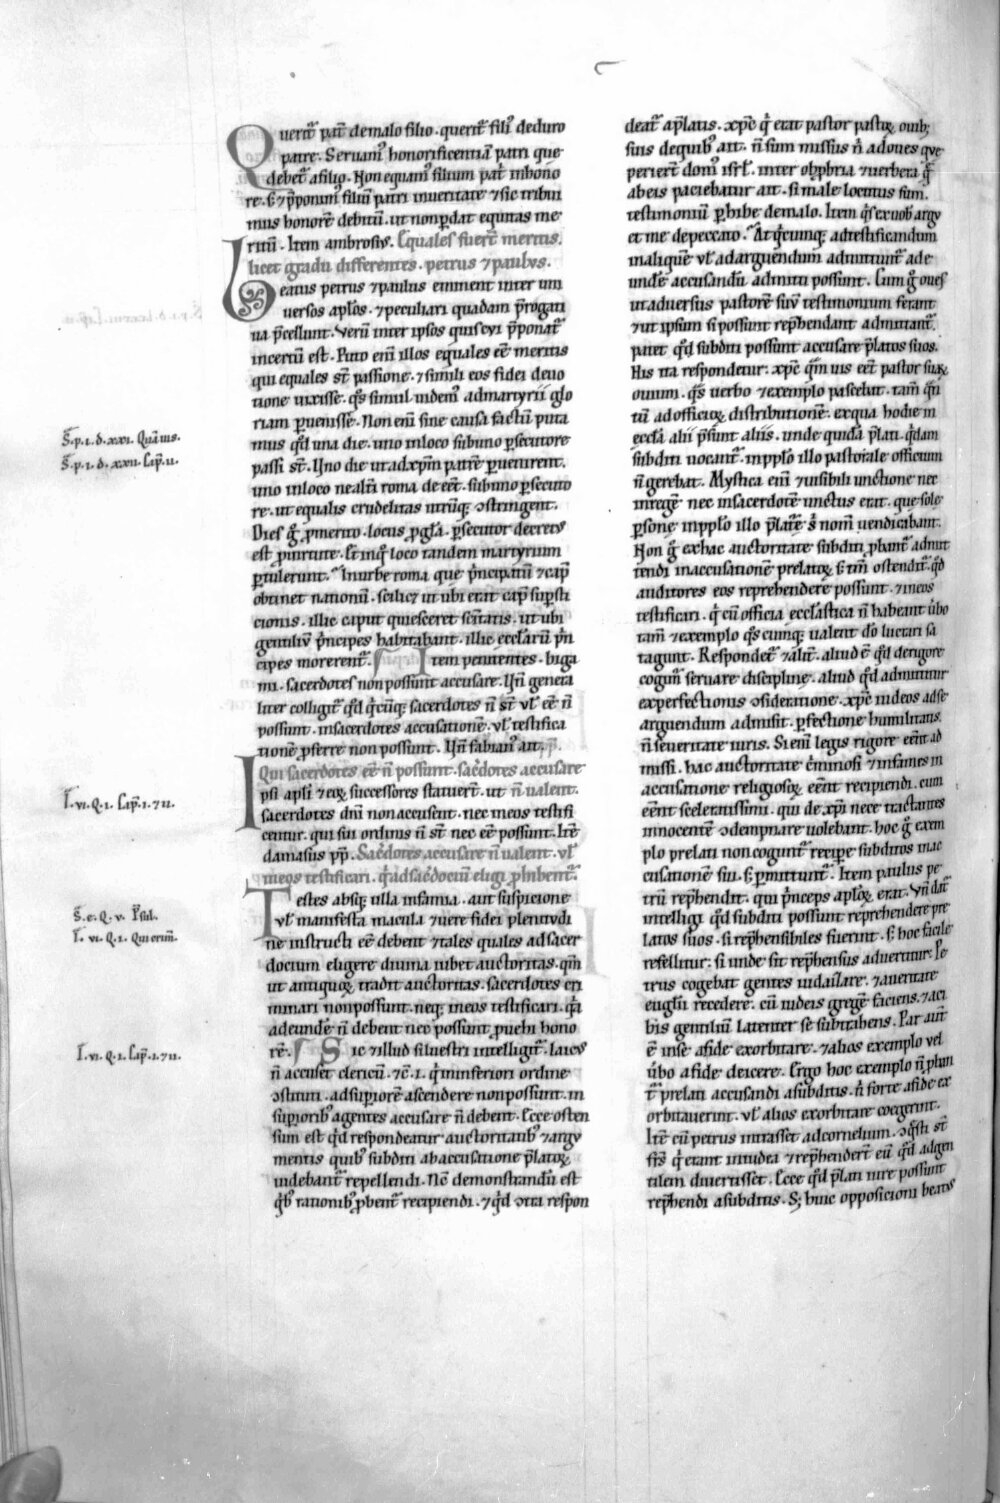 Querit᷑ pat̄ de malo filio. querit᷑ fili᷒ de duro
patre. Seruam᷒ honorificentiā patri que
debet᷑ a filio. Non equam᷒ filium pat̄ in bono
re. s; ⁊ p̄ponim᷒ filiū patri in ueritate ⁊ sic tribui
mus honorē debitū. ut non p̱dat equitas me
ritū. Item ambrosi᷒. Equales fuer̄t meritis.
licet gradu differentes. petrus ⁊ paulus.
Beatus petrus ⁊ paulus eminent inter uni
uersos ap̄los. ⁊ peculiari quadam p̄rogati
ua p̄cellunt. Verū inter ip̄sos quis cui p̄ponat᷑
incertū est. Puto eni᷒ illos equales ēe meritis
qui equales st̄ passione. ⁊ simili eos fidei deuo
tione uixisse. qͦs simul uidem᷒ ad martyrii glo
riam ꝑuenisse. Non eni᷒ sine causa factū puta
mus qd̄ una die. uno in loco sub uno ꝑsecutore
passi st̄. Uno die ut ad xp̄m patrē ꝑuenirent.
uno in loco ne alt̄i roma deeēt. sub uno ꝑsecuto
re. ut equalis crudelitas utrūq; ↄstringeret.
Dies gͦ ꝓ merito. locus ꝓ gl̄a. ꝑsecutor decret᷒
est ꝓ uirtute. Et in qͦ loco tandem martyrium
ꝑtulerunt. In urbe roma que p̄ncipatū ⁊ cap̄
obtinet nationū. scilic; ut ubi erat cap̄ sup̱sti
cionis. illic caput quiesceret sc̄itatis. ut ubi
gentiliū p̄ncipes habitabant. illic ecclarū p̄n
cipes morerent᷑. Item penitentes. biga
mi. sacerdotes non possunt accusare. Un̄ genera
liter colligit᷑ qd̄ qͥcūq; sacerdotes n̄ st̄ vl̄ eē n̄
possunt. in sacerdotes accusationē. vl̄ testifica
tionē ꝓferre non possunt. Un̄ fabian᷒ ait. p̄.
Qui sacerdotes eē n̄ possunt. sac̄dotes accusare
Ipsi ap̄li ⁊ eoꝝ successores statuer̄t. ut n̄ ualent.
sacerdotes dn̄i non accusent. nec in eos testifi
centur. qui sui ordinis n̄ st̄ nec eē possunt. Itē
damasus pp̄. Sac̄dotes accusare n̄ ualent. vl̄
in eos testificari. qͥ ad sac̄dociū eligi ꝓhibent᷑.
Testes absq; ulla infamia. aut suspicione
vl̄ manifesta macula ⁊ uere fidei plenitudi
ne instructi eē debent ⁊ tales quales ad sacer
docium eligere diuina iubet auctoritas. qm̄
ut antiquoꝝ tradit auctoritas. sacerdotes cri
minari non possunt. neq; in eos testificari. qͥ
ad eundē n̄ debent nec possunt ꝓuehi hono
rē. Sic ⁊ illud siluestri intelligit᷑. laicus
n̄ accuset clericū. ⁊c̄. i. qͥ in inferiori ordine
ↄstituti. ad suꝑiorē ascendere non possunt. in
suꝑiorib᷒ agentes accusare n̄ debent. Ecce osten
sum est qd̄ respondeatur auctoritatib᷒ ⁊ argu
mentis quib᷒ subditi ab accusatione p̄latoꝝ
uidebant᷑ repellendi. Nc̄ demonstrandū est
qͥb᷒ rationib᷒ ꝓbent᷑ recipiendi. ⁊ qd̄ ↄtra respon
deat᷑ a p̄latis. xp̄c qͥ erat pastor pastoꝝ ouib;
suis de quib᷒ ait. n̄ sum missus nͥ ad oues que
perier̄t dom᷒ isrl̄. inter obꝓbria ⁊ uerbera qͣ
ab eis paciebatur ait. si male locutus sum.
testimoniū ꝑhibe de malo. Item qͥs ex uob᷒ argu
et me de peccato. At qͥcumq; ad testificandum
maliquē vl̄ ad arguendum admittunt᷑ ad e
undē accusandū admitti possunt. Cum gͦ oues
ut aduersus pastorē suū testimonium ferant
⁊ ut ipsum si possunt rep̄hendant admittant᷑.
patet qd̄ subditi possunt accusare p̄latos suos.
His ita respondetur. xp̄c qͣmuis eēt pastor suaꝝ
ouium. qͣs uerbo ⁊ exemplo pascebat. tam̄ qͣn
tū ad officioꝝ distributionē. ex qua hodie in
eccl̄a alii p̄sunt aliis. unde quidā p̄lati qͥdam
subditi uocant᷑. in pplo illo pastorale officium
n̄ gerebat. Mystica eni᷒ ⁊ uisibili unctione nec
in regē. nec in sacerdotē unctus erat. que sole
ꝑsone in pplo illo p̄latōe s᷑ nom̄ uendicabant.
Non gͦ ex hac auctoritate subditi ꝓbant᷑ admit
tendi in accusationē prelatoꝝ. s; tm̄ ostendit᷑. qd̄
auditores eos reprehendere possunt. ⁊ in eos
testificari. qͥ cū officia ecclasticā n̄ habeant u᷑bo
tam̄ ⁊ exemplo qͦscumq; ualent dō lucrari sa
tagunt. Respondet᷑ ⁊ alit̄. aliud ē qd̄ de rigore
cogim᷑ seruare discipline. aliud qd̄ admittitur
ex perfectionis ↄsideratione. xp̄c iudeos ad se
arguendum admisit. ꝑfectione humilitatis.
n̄ seueritate iuris. Si eni᷒ legis rigore eēnt ad
missi. hac auctoritate c᷑minosi ⁊ infames in
accusatione religiosoꝝ eēnt recipiendi. cum
eēnt sceleratissimi. qui de xp̄i nece tractantes
innocentē ↄdempnare uolebant. hoc gͦ exem
plo prelati non cogunt᷑ recipe subditos in ac
cusationē sui. s; ꝑmittunt᷑. Item paulus pe
trū rep̄hendit. qui p̄nceps ap̄loꝝ erat. Vn̄ dat᷑
intelligi qd̄ subditi possunt reprehendere pre
latos suos. si rep̄hensibiles fuerint. s; hoc facile
refellitur: si unde sit rep̄hensus aduertitur. Pe
trus cogebat gentes iudaizare. ⁊ a ueritate
euglii recedere. cū iudeis gregē faciens. ⁊ a ci
bis gentiliū latenter se subtrahens. Par aut̄
ē in se a fide exorbitare. ⁊ alios exemplo vel
u᷑bo a fide deicere. Ergo hoc exemplo n̄ ꝓban
t᷑ prelati accusandi a subditis. n̄ forte a fide ex
orbitauerint. vl̄ alios exorbitare coegerint.
Itē cū petrus intrasset ad cornelium. ↄqͥsti st̄
fr̄s qͥ erant in iudea ⁊ rep̄hender̄t eū qd̄ ad gen
tilem diuertisset. Ecce qd̄ p̄lati iure possunt
rep̄hendi a subditis. S; huic opposicioni beatus
S̄. p. i. d. xxi. Quāuis.
S̄. p. i. d. xxii. Cap̄. ii.
I᷒. vi. Q. i. Cap̄. i. ⁊ ii.
S̄. e. Q. v. P̄sul.
I᷒. vi. Q. i. Qui crim̄.
I᷒. vi. Q. i. Cap̄. i. ⁊ ii.